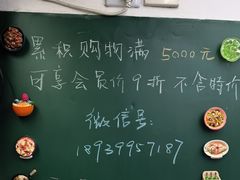 累积购物满 5000元
可享会员价9折 不含特价
微信号:
18939957187